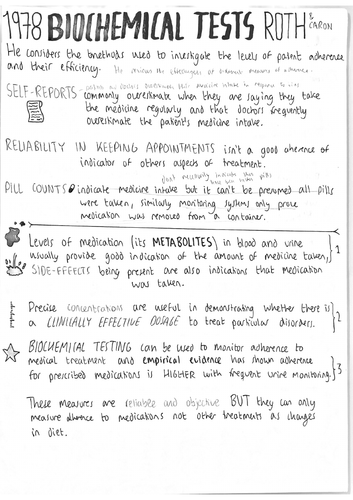 1978 BIOCHEMICAL TESTS ROTH & CARON
He considers the methods used to investigate the levels of patient adherence
and their efficiency. He reviews the of different measures of adherence.
SELF-REPORTS - patient or doctors
commonly overestimate when they are saying they take
the medicine regularly and that doctors frequently
overestimate the patient's medicine intake.
RELIABILITY IN KEEPING APPOINTMENTS isn't a good adherence of
indicator of others aspects of treatment.
don't necessarily indicate that pills
have been taken
PILL COUNTS indicate medicine intake but it can't be presumed all pills
were taken, similarly monitoring systems only prove
medication was removed from a container.
Levels of medication (its METABOLITES) in blood and urine
usually provide good indication of the amount of medicine taken, 1
SIDE-EFFECTS being present are also indications that medication
was taken.
Precise concentrations are useful in demonstrating whether there is
a CLINICALLY EFFECTIVE DOSAGE to treat particular disorders. 2
BIOCHEMICAL TESTING can be used to monitor adherence to
medical treatment and empirical evidence has shown adherence
for prescribed medications is HIGHER with frequent urine monitoring. 3
These measures are reliable and objective BUT they can only
measure adherence to medications not other treatments as changes
in diet.